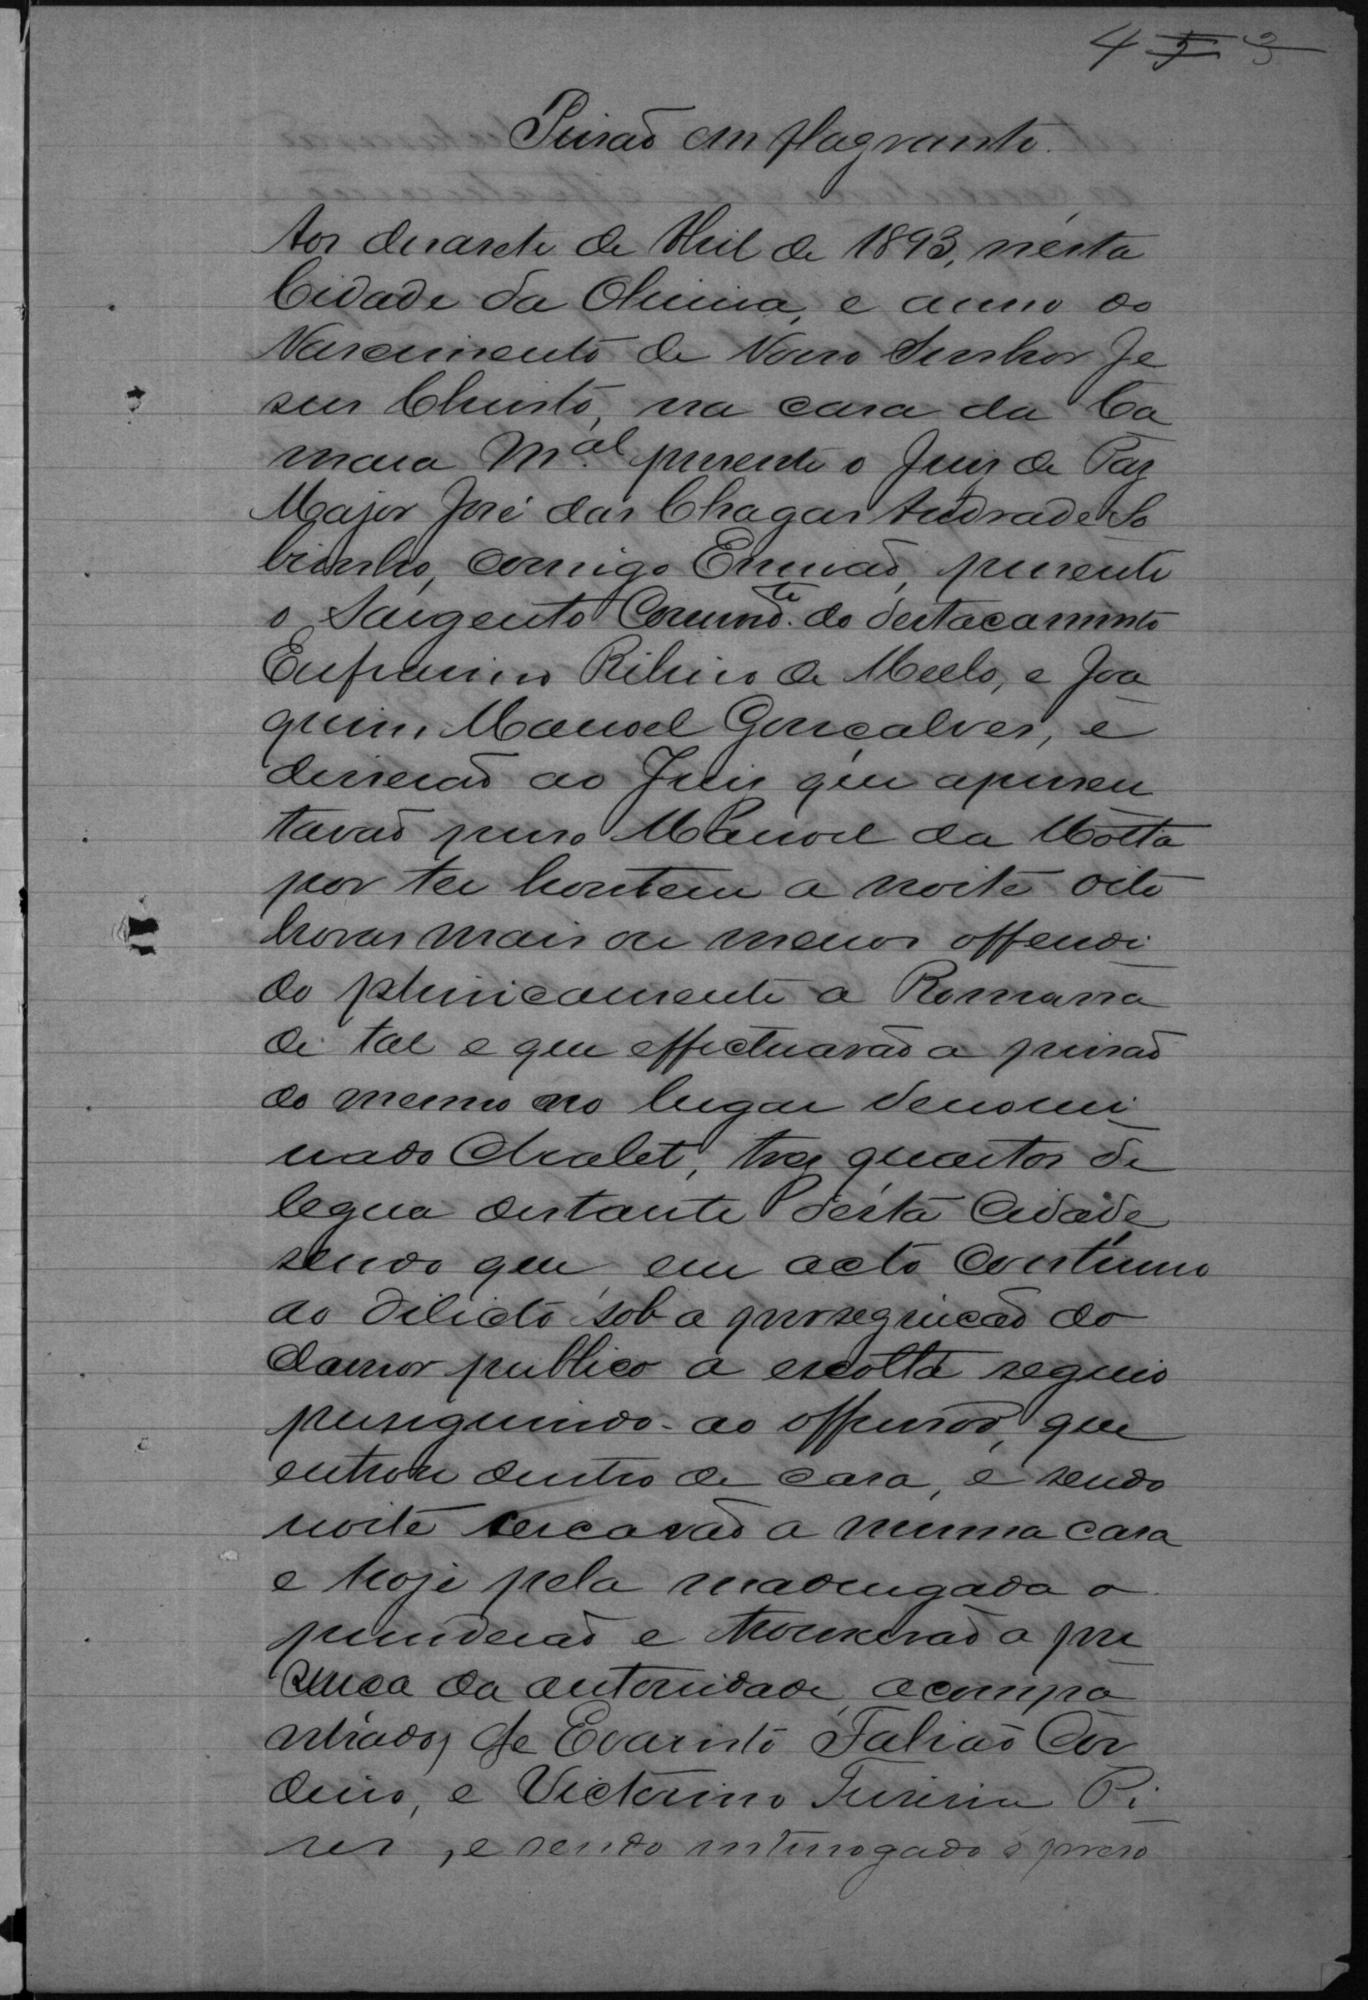 4 5 3
Prisão em flagrante.
Aos desasete de Abril de 1893, nésta
Cidade da Oliveira, e anno do
Nascimento de Nosso Senhor Je
sus Christo, na casa da Ca
mara M.al presente o Juiz de Paz
Major José das Chagas Andrade So
brinho, comigo Escrivão, presente
o Sargento Commd.te do destacamento
Eufrasino Ribeiro de Mello, e Joa
quim Manoel Gonçalves, e
disserão ao Juiz que apresen
tavão preso Manoel da Motta
por ter hontem a noite oito
horas mais ou menos offendi
do phisicamente a Romana
de tal e que effectuarão a prisão
do mesmo no lugar denomi
nado Chalet, tres quartos de
legua distante désta Cidade
sendo que em acto continuo
ao delicto sob a perseguicão do
clamor publico a escolta seguio
perseguindo ao offensor, que
entrou dentro de casa, e sendo
noite cercarão a mesma casa
e hoje pela madrugada o
prenderão e trouxerão a pre
senca da autoridade acompa
nhados de Evaristo Falcão Cor
deiro, e Victorino Ferreira Pi
res, e sendo interrogado o preso